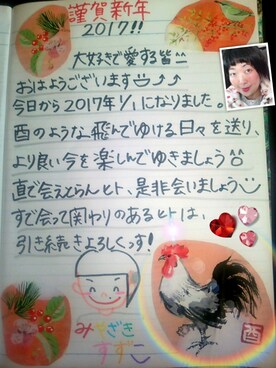 謹賀新年
2017!!
大好きで愛する皆
おはようございます
今日から2017年1/1になりました。
酉のような飛んでゆける日々を送り、
より良い今を楽しんでゆきましょう
直で会えとらんヒト、是非会いましょう
すで会って関わりのあるヒトは、
引き続きよろしくっす!
みやざき
すずこ
酉